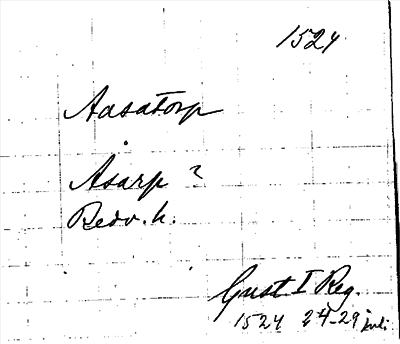 1524
Aasatorp
Asarp ?
Redv. h.
Gust I Reg.
1524 24-29 juli